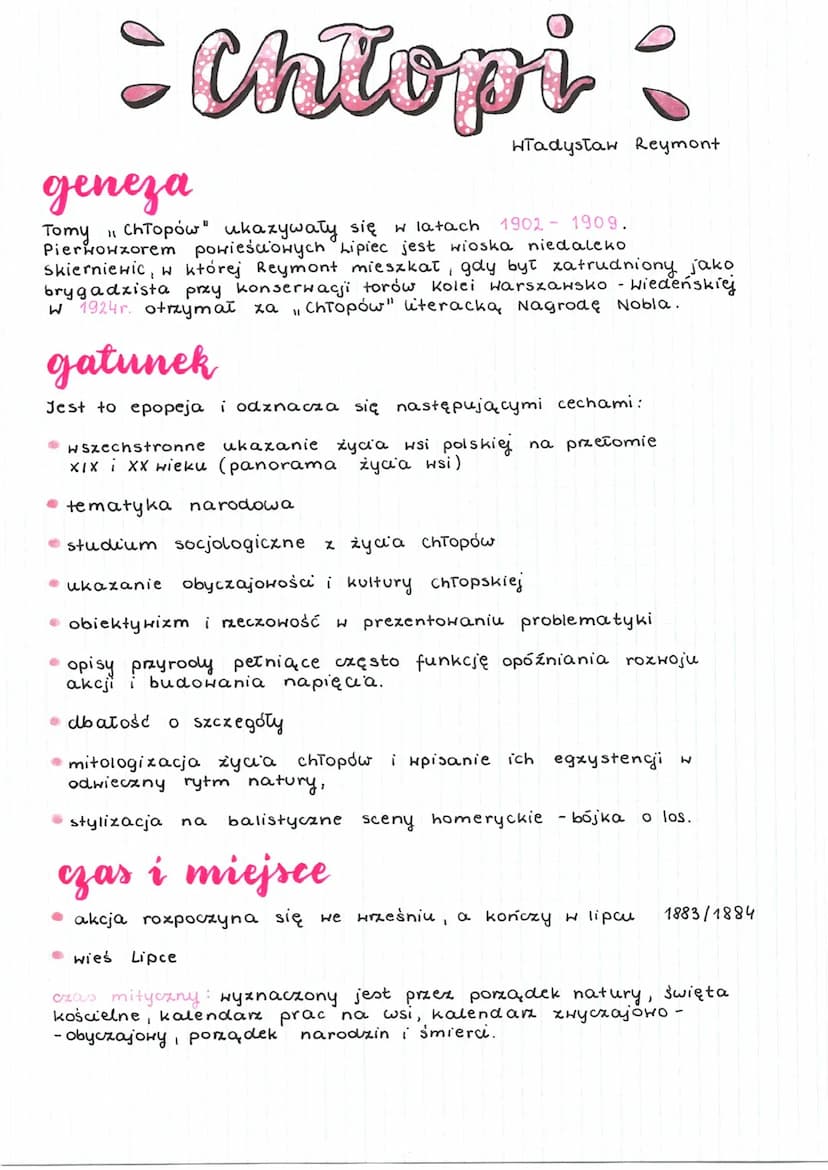 Chłopi
Władysław Reymont
geneza
Tomy „Chłopów" ukazywały się w latach 1902 - 1909.
Pierwowzorem powieściowych Lipiec jest wioska niedaleko
Skierniewic, w której Reymont mieszkał, gdy był zatrudniony jako
brygadzista przy konserwacji torów Kolei Warszawsko - Wiedeńskiej
W 1924r. otrzymał za „Chłopów" literacką Nagrodę Nobla.
gatunek
Jest to epopeja i odznacza się następującymi cechami:
• wszechstronne ukazanie życia wsi polskiej na przełomie
XIX i XX wieku (panorama życia wsi)
• tematyka narodowa
• studium socjologiczne z życia chłopów
• ukazanie obyczajowości i kultury chłopskiej
• obiektywizm i rzeczowość w prezentowaniu problematyki
• opisy przyrody pełniące często funkcję opóźniania rozwoju
akcji i budowania napięcia.
• dbałość o szczegóły
• mitologizacja życia chłopów i wpisanie ich egzystencji w
odwieczny rytm natury,
• stylizacja na balistyczne sceny homeryckie - bójka o los.
czas i miejsce
• akcja rozpoczyna się we wrześniu, a kończy w lipcu 1883/1884
• wieś Lipce
czas mityczny: wyznaczony jest przez porządek natury, święta
kościelne, kalendarz prac na wsi, kalendarz zwyczajowo -
- obyczajowy, porządek narodzin i śmierci.